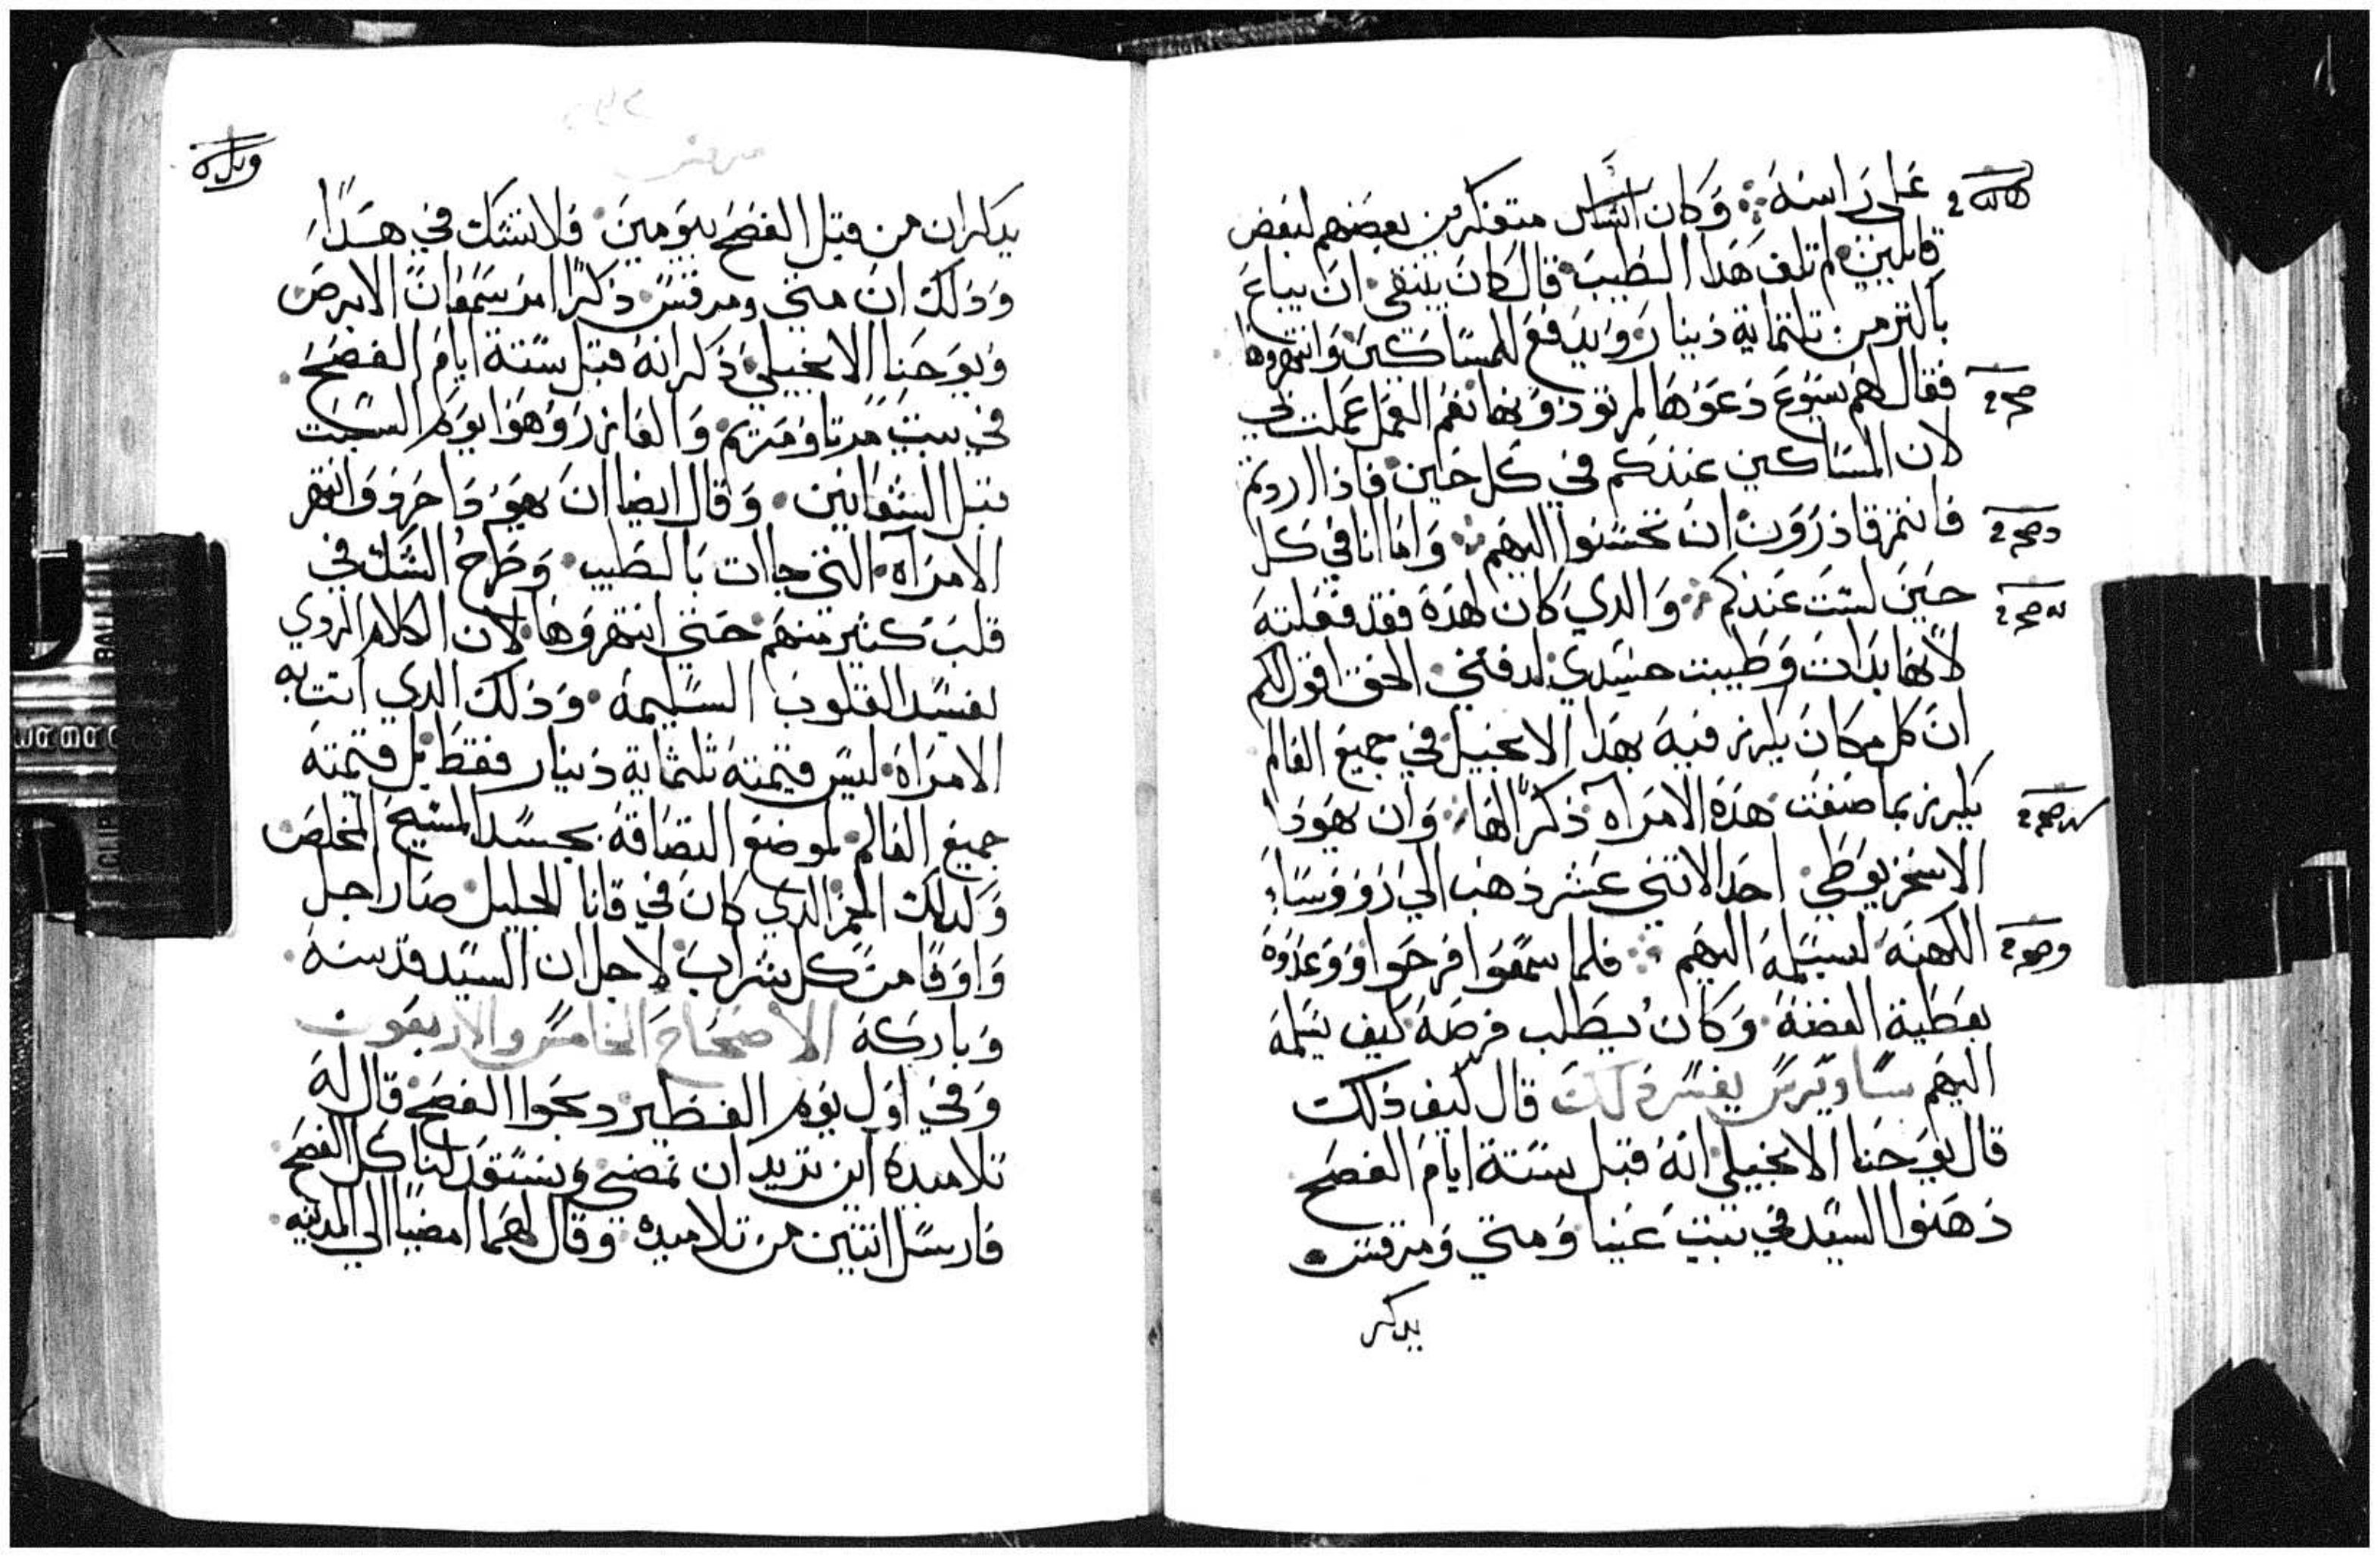 على راسه ⁘ وكان اناس متفكرين بعضهم لبعض
قايلين لم تلف هدا الطيب قال كان ينبغي ان يباع
باكتر من تلتماية دينار ويدفع للمساكين وانتهروها
فقال لهم يسوع دعوها لم تودونها نعم العمل عملت بي
لان المساكين عندكم في كل حين فاذا اردتم
فانتم قادرون ان تحسنوا اليهم ⁘ واما انا في كل
حين لست عندكم ⁘ والدي كان لهده فقد فعلته
لانها بدات وطيبت جسدي لدفني الحق اقول لكم
ان كل مكان يكرز فيه بهدا الانجيل في جميع العالم
يكرز بما صنعت هده الامراه ذكرا لها ⁘ وان يهودا
الاسخريوطي احد الاتنى عشر ذهب الي رووسا
الكهنه ليسلمه اليهم ⁘ فلما سمعوا فرحوا ووعدوه
بعطية الفضه وكان يطلب فرصه كيف يسلمه
اليهم ساويرس يفسر ذلك قال كيف ذلك
قال يوحنا الانجيلي انه قبل ستة ايام الفصح
دهنوا السيد في بيت عنيا ومتي ومرقس
يدكر
يدكران من قبل الفصح بيومين فلا تشك في هدا
وذلك ان متي ومرقس ذكرا امر سمعان الابرص
ويوحنا الانجيلي ذكر انه قبل ستة ايام الفصح
في بيت مرتا ومريم والعازر وهوا يوم السبت
قبل الشعانين وقال ايضا ان يهودا حرف وانتهر
الامراه التي جاات بالطيب وطرح الشك في
قلب كثير منهم حتي انتهروها لان الكلام الردي
يفسد القلوب السليمه وذلك الدي اتت به
الامراه ليس قيمته ثلثماية دينار فقط بل قيمته
جميع العالم لموضع التصاقه بجسد المسيح المخلص
وكدلك الخمر الدي كان في قانا الجليل صار اجل
واوفا من كل شراب لاجل ان السيد قدسه
وباركه الاصحاح الخامس والاربعون
وفي اول يوم الفطير دبحوا الفصح قال له
تلاميده اين تريد ان نمضي ونستعد لنا كل الفصح
فارسل اتنين من تلاميده وقال لهما امضيا الي المدينه